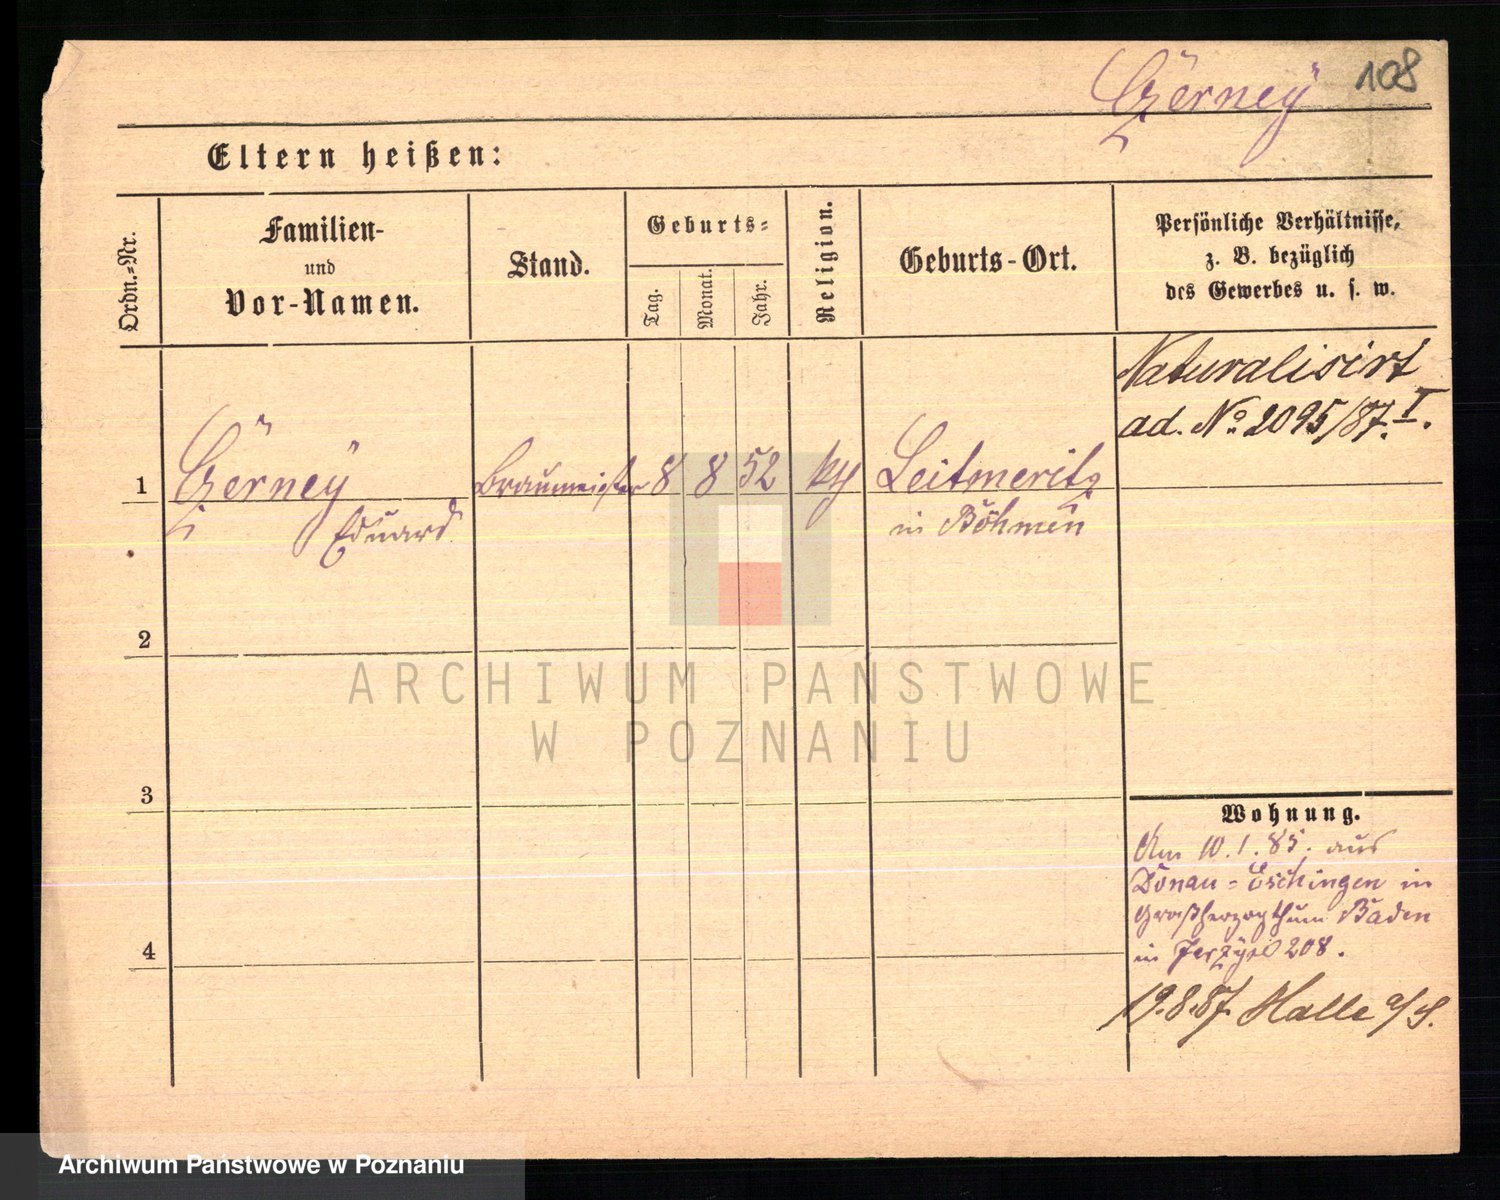 Czerney
108
Eltern heißen:
Ordn.=Nr.
Familien-
und
Vor-Namen.
Stand.
Geburts=
Tag.
Monat.
Jahr.
Religion.
Geburts-Ort.
Persönliche Verhältnisse,
z. B. bezüglich
des Gewerbes u. s. w.
Naturalisirt
ad. No. 2095/87. I.
1
Czerney
Eduard
Braumeister
8
8
52
Leitmeritz
in Böhmen
2
3
4
Wohnung.
Am 10.1.85. aus
Donau-Eschingen in
Großherzogthum Baden
in 208.
19.8.87. Halle a/S.
ARCHIWUM PAŃSTWOWE
W POZNANIU
Archiwum Państwowe w Poznaniu